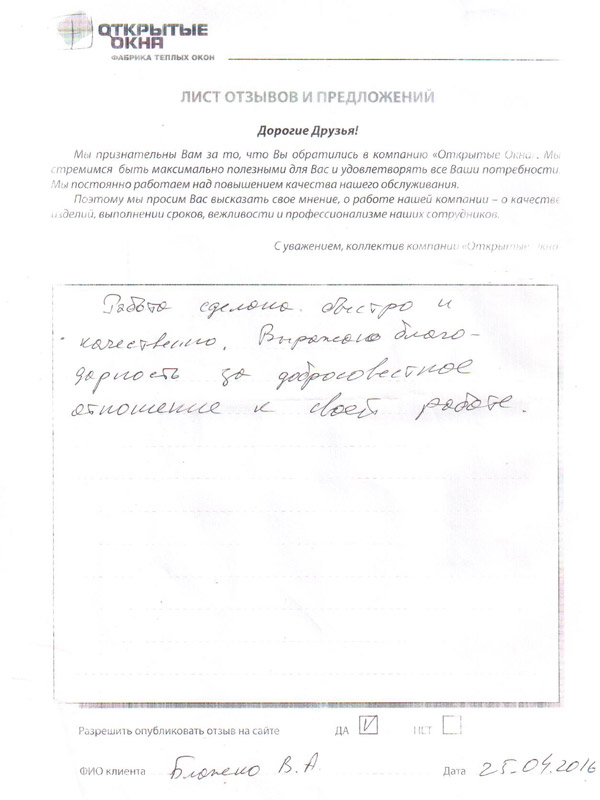 ОТКРЫТЫЕ
ОКНА
ФАБРИКА ТЕПЛЫХ ОКОН
ЛИСТ ОТЗЫВОВ И ПРЕДЛОЖЕНИЙ
Дорогие Друзья!
Мы признательны Вам за то, что Вы обратились в компанию «Открытые Окна». Мы
стремимся быть максимально полезными для Вас и удовлетворять все Ваши потребности.
Мы постоянно работаем над повышением качества нашего обслуживания.
Поэтому мы просим Вас высказать свое мнение, о работе нашей компании – о качестве
изделий, выполнении сроков, вежливости и профессионализме наших сотрудников.
С уважением, коллектив компании «Открытые Окна»
Работа сделана быстро и
качественно. Выражаю благо-
дарность за добросовестное
отношение к своей работе.
Разрешить опубликовать отзыв на сайте ДА V НЕТ
ФИО клиента В.А. Дата 25.04.2016